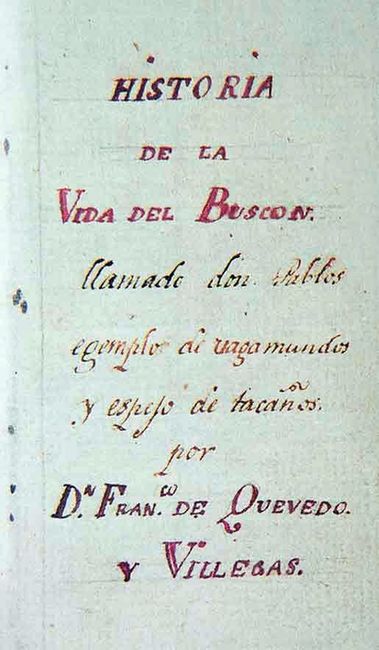 HISTORIA
DE LA
VIDA DEL BUSCON.
llamado don Pablos
egemplos de vagamundos
y espejo de tacaños.
por
D.ⁿ FRAN.ᶜᵒ DE QUEVEDO.
Y VILLEGAS.